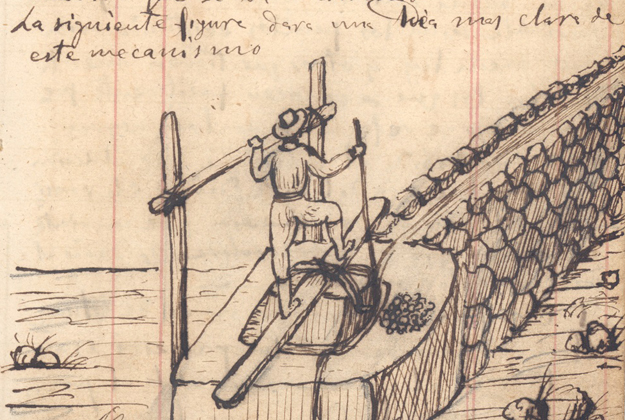 La siguiente figura dara una idea mas clara de
este mecanismo